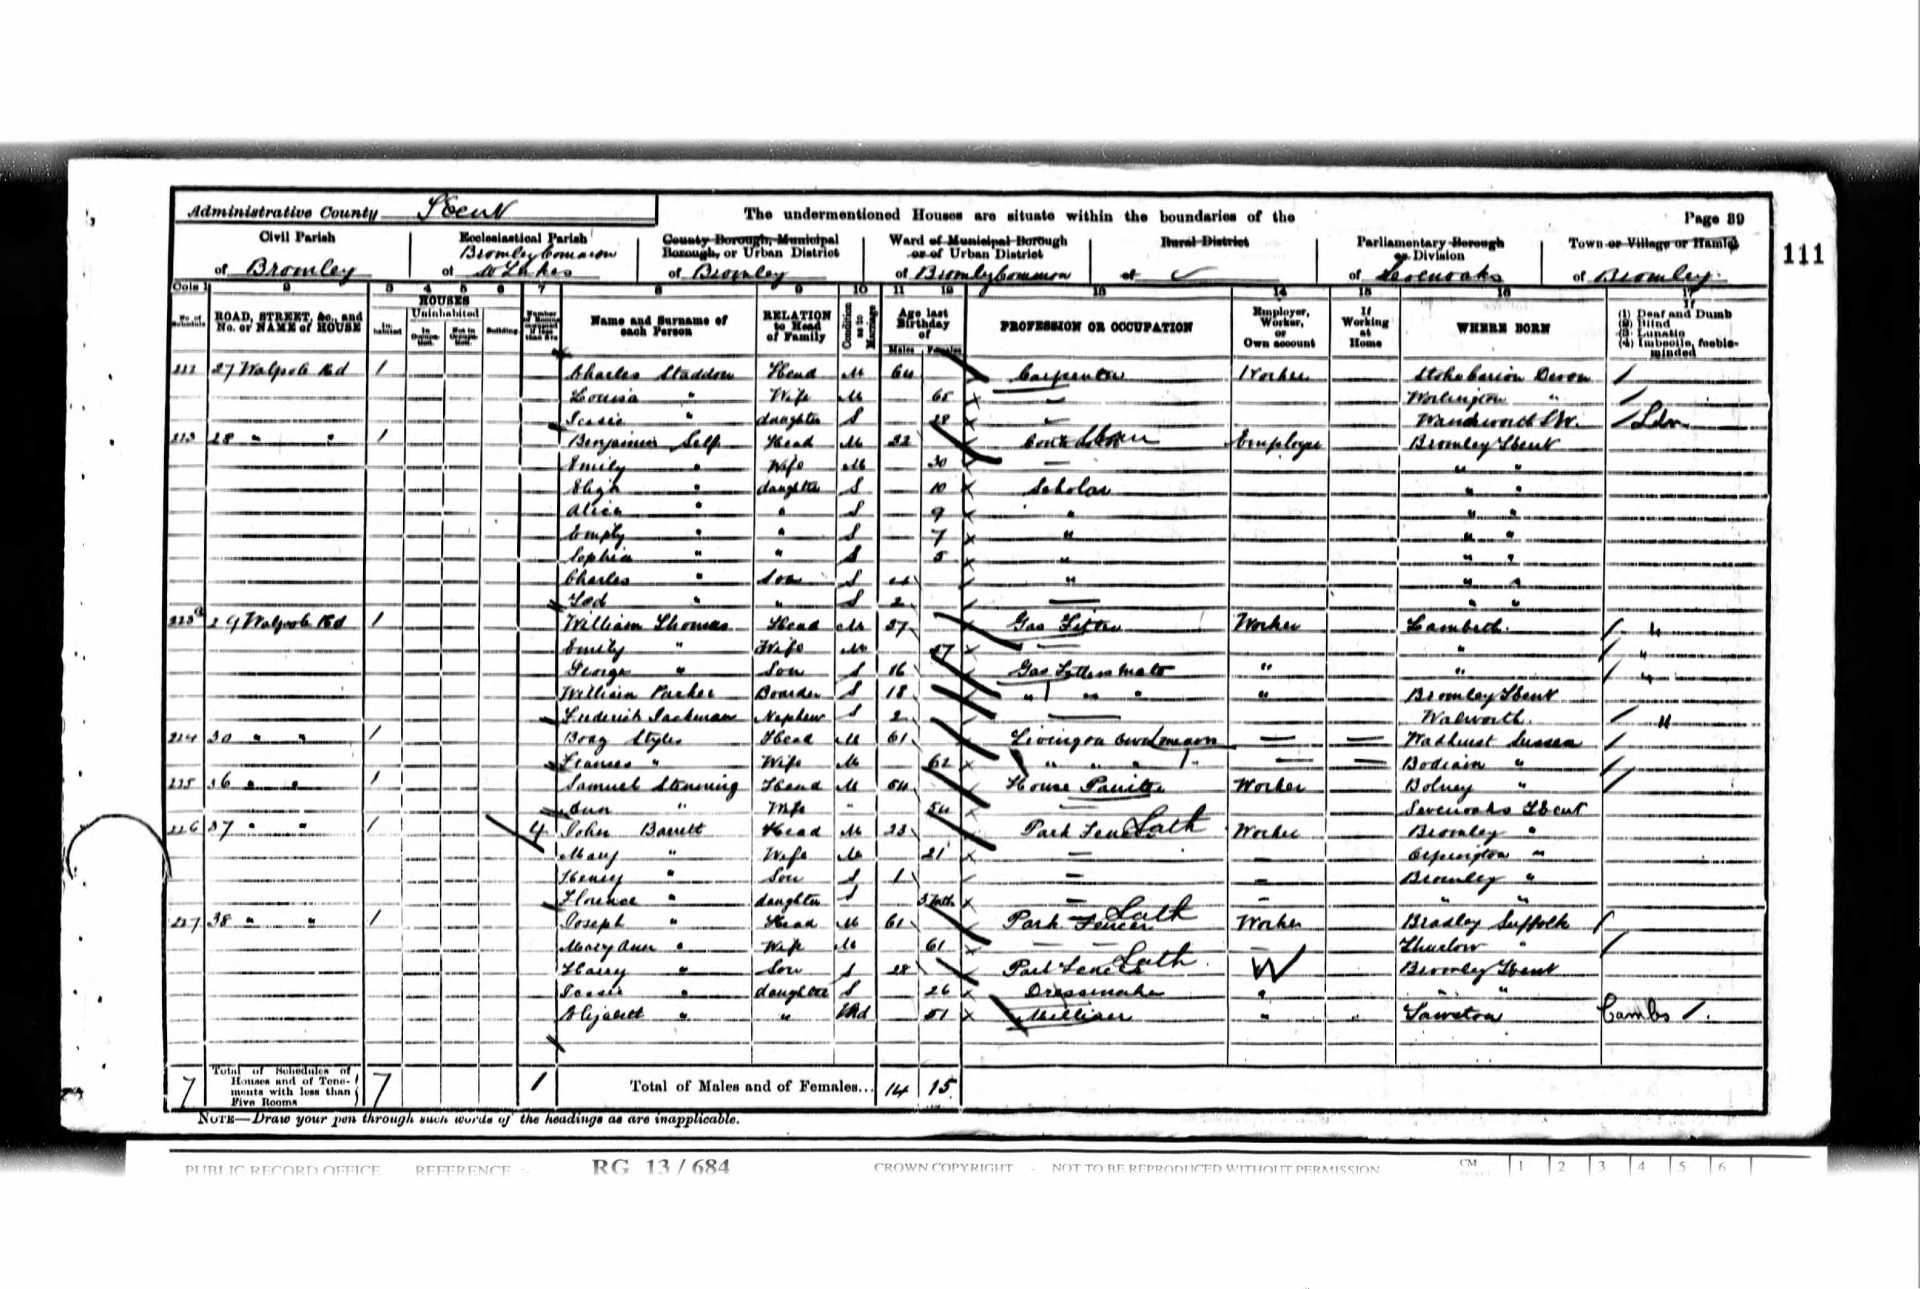 Administrative County Kent
The undermentioned Houses are situate within the boundaries of the
Page 39
111
Civil Parish
of Bromley
Ecclesiastical Parish
Bromley Common
of St Lukes
County Borough, Municipal Borough, or Urban District
of Bromley
Ward of Municipal Borough or of Urban District
of Bromley Common
Rural District
of
Parliamentary Borough or Division
of Sevenoaks
Town or Village or Hamlet
of Bromley
Cols 1 2 3 4 5 6 7 8 9 10 11 12 13 14 15 16 17
No. of Schedule
ROAD, STREET, &c., and No. or NAME of HOUSE
HOUSES
Inhabited
Uninhabited
In Occupation.
Not in Occupation.
Building
Name and Surname of each Person
RELATION to Head of Family
Condition as to Marriage
Age last Birthday of
Males Females
PROFESSION OR OCCUPATION
Employer, Worker, or Own account
If Working at Home
WHERE BORN
If
(1) Deaf and Dumb
(2) Blind
(3) Lunatic
(4) Imbecile, feeble-minded
27 Walpole Rd 1 Charles Staddon Head M 64 Carpenter Worker Devon
Louisa " Wife M 65 "
Jessie " daughter S 28 Wandsworth S.W. Ldn
28 " " 1 Benjamin Self Head M 32 Employer Bromley Kent
Emily " Wife M 30 " "
" daughter S 10 Scholar " "
Alice " " S 9 " " "
Emily " " S 7 " " "
Sophia " " S 5 " " "
Charles " Son S " " "
" " S 2 " "
29 Walpole Rd 1 William Thomas Head M Gas Fitter Worker Lambeth
Emily " Wife M "
George " Son S 16 Gas Fitters Mate " "
William Parker Boarder S 18 " " " " Bromley Kent
Frederick Jackman Nephew S 2 Walworth
224 30 " " 1 Boaz Styles Head M 61 Living on own means Wadhurst Sussex
Frances " Wife M 62 " " " Bodiam "
225 36 " " 1 Samuel Stenning Head M 54 House Painter Worker Bolney "
Ann " Wife " 54 Sevenoaks Kent
226 37 " " 1 4 John Barrett Head M 23 Park Fencer Lath Worker Bromley "
Mary " Wife M 21 Orpington "
Henry " Son S 1 Bromley "
Florence " daughter S " "
227 38 " " 1 Joseph " Head M 61 Park Fencer Lath Worker Bradley Suffolk
Mary Ann " Wife M 61 Thurlow "
Harry " Son S 28 Park Fencer Lath W Bromley Kent
Jessie " daughter S 26 Dressmaker " " "
Elizabeth " " Wid 51 Milliner " Sawston Cambs
7
Total of Schedules of Houses and of Tenements with less than Five Rooms
7
1
Total of Males and of Females... 14 15
NOTE—Draw your pen through such words of the headings as are inapplicable.
PUBLIC RECORD OFFICE REFERENCE RG 13/684 CROWN COPYRIGHT - NOT TO BE REPRODUCED WITHOUT PERMISSION CM 1 2 3 4 5 6